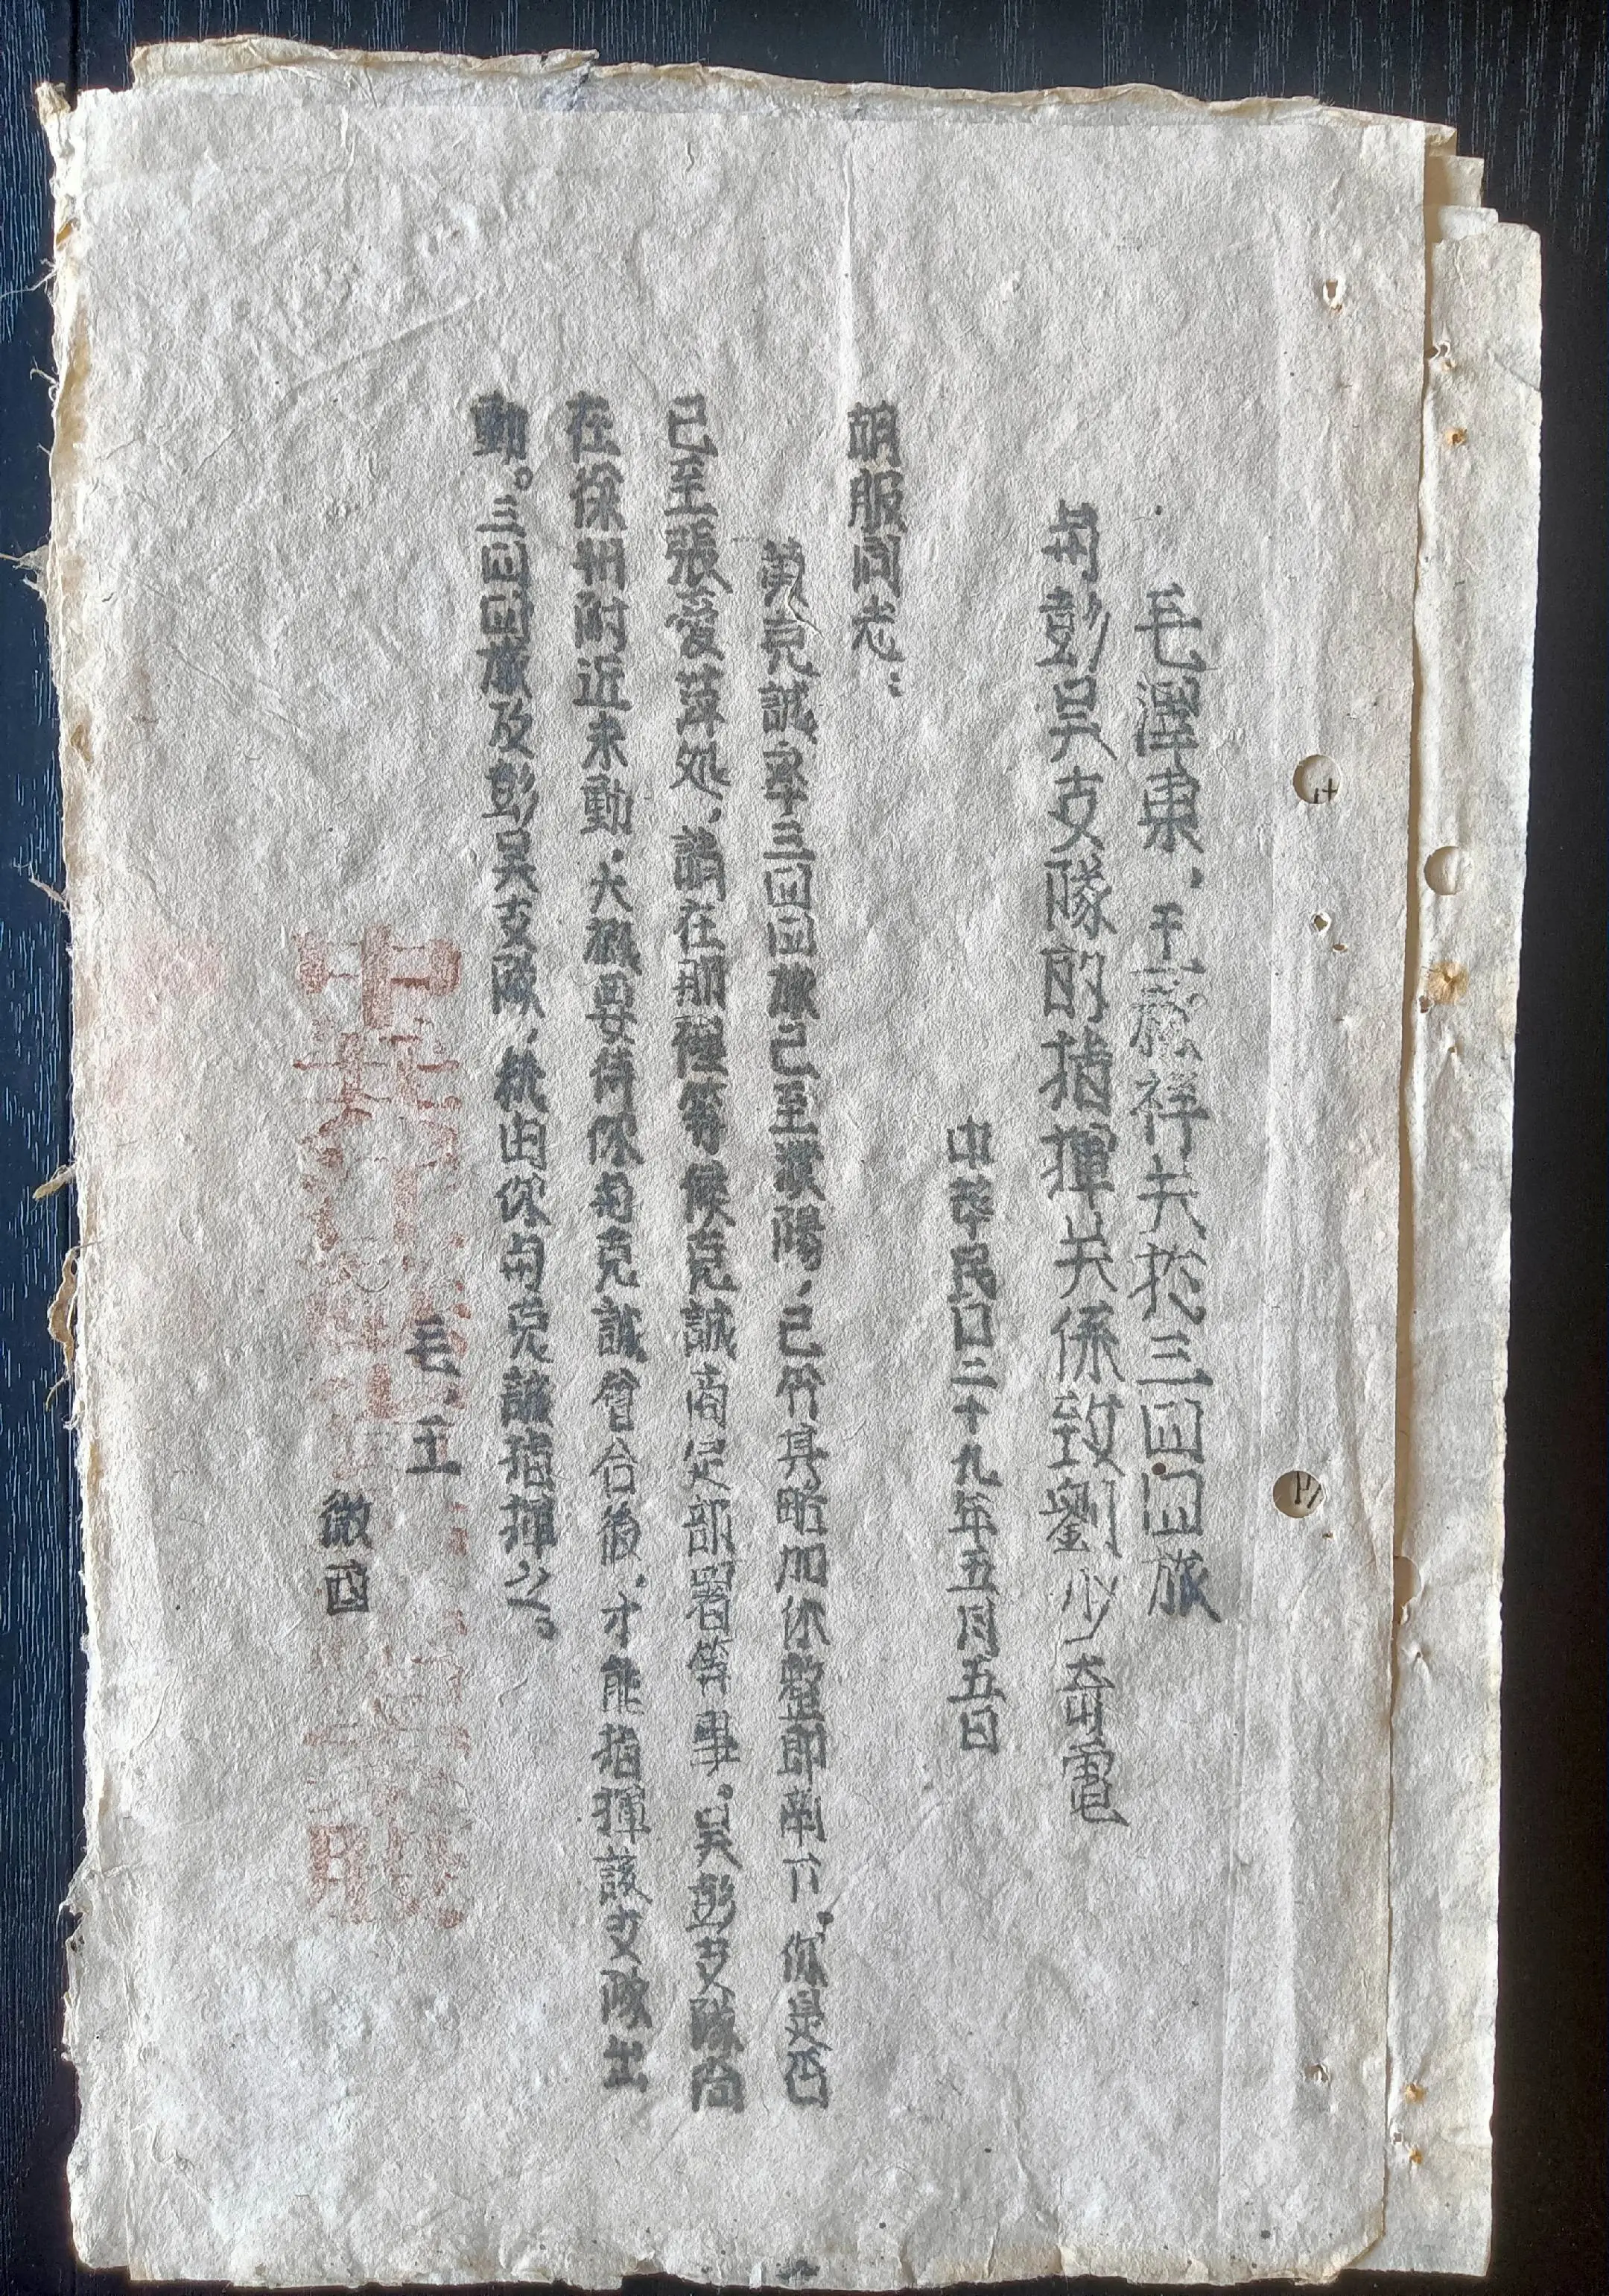 毛澤東，王稼祥关於三四四旅
与彭吴支隊的指揮关係致劉少奇電
中华民囗二十九年五月五日
胡服同志：
黄克誠率三四四旅已至濮陽，已令其略加休整即南下。你是否
已至張愛萍処，請在那裡等候克誠商定部署等事。吴彭支隊尚
在徐州附近未動，大概要待你与克誠會合後，才能指揮該支隊出
動。三四四旅及彭吴支隊，統由你与克誠指揮之。
毛，王
微酉
中共